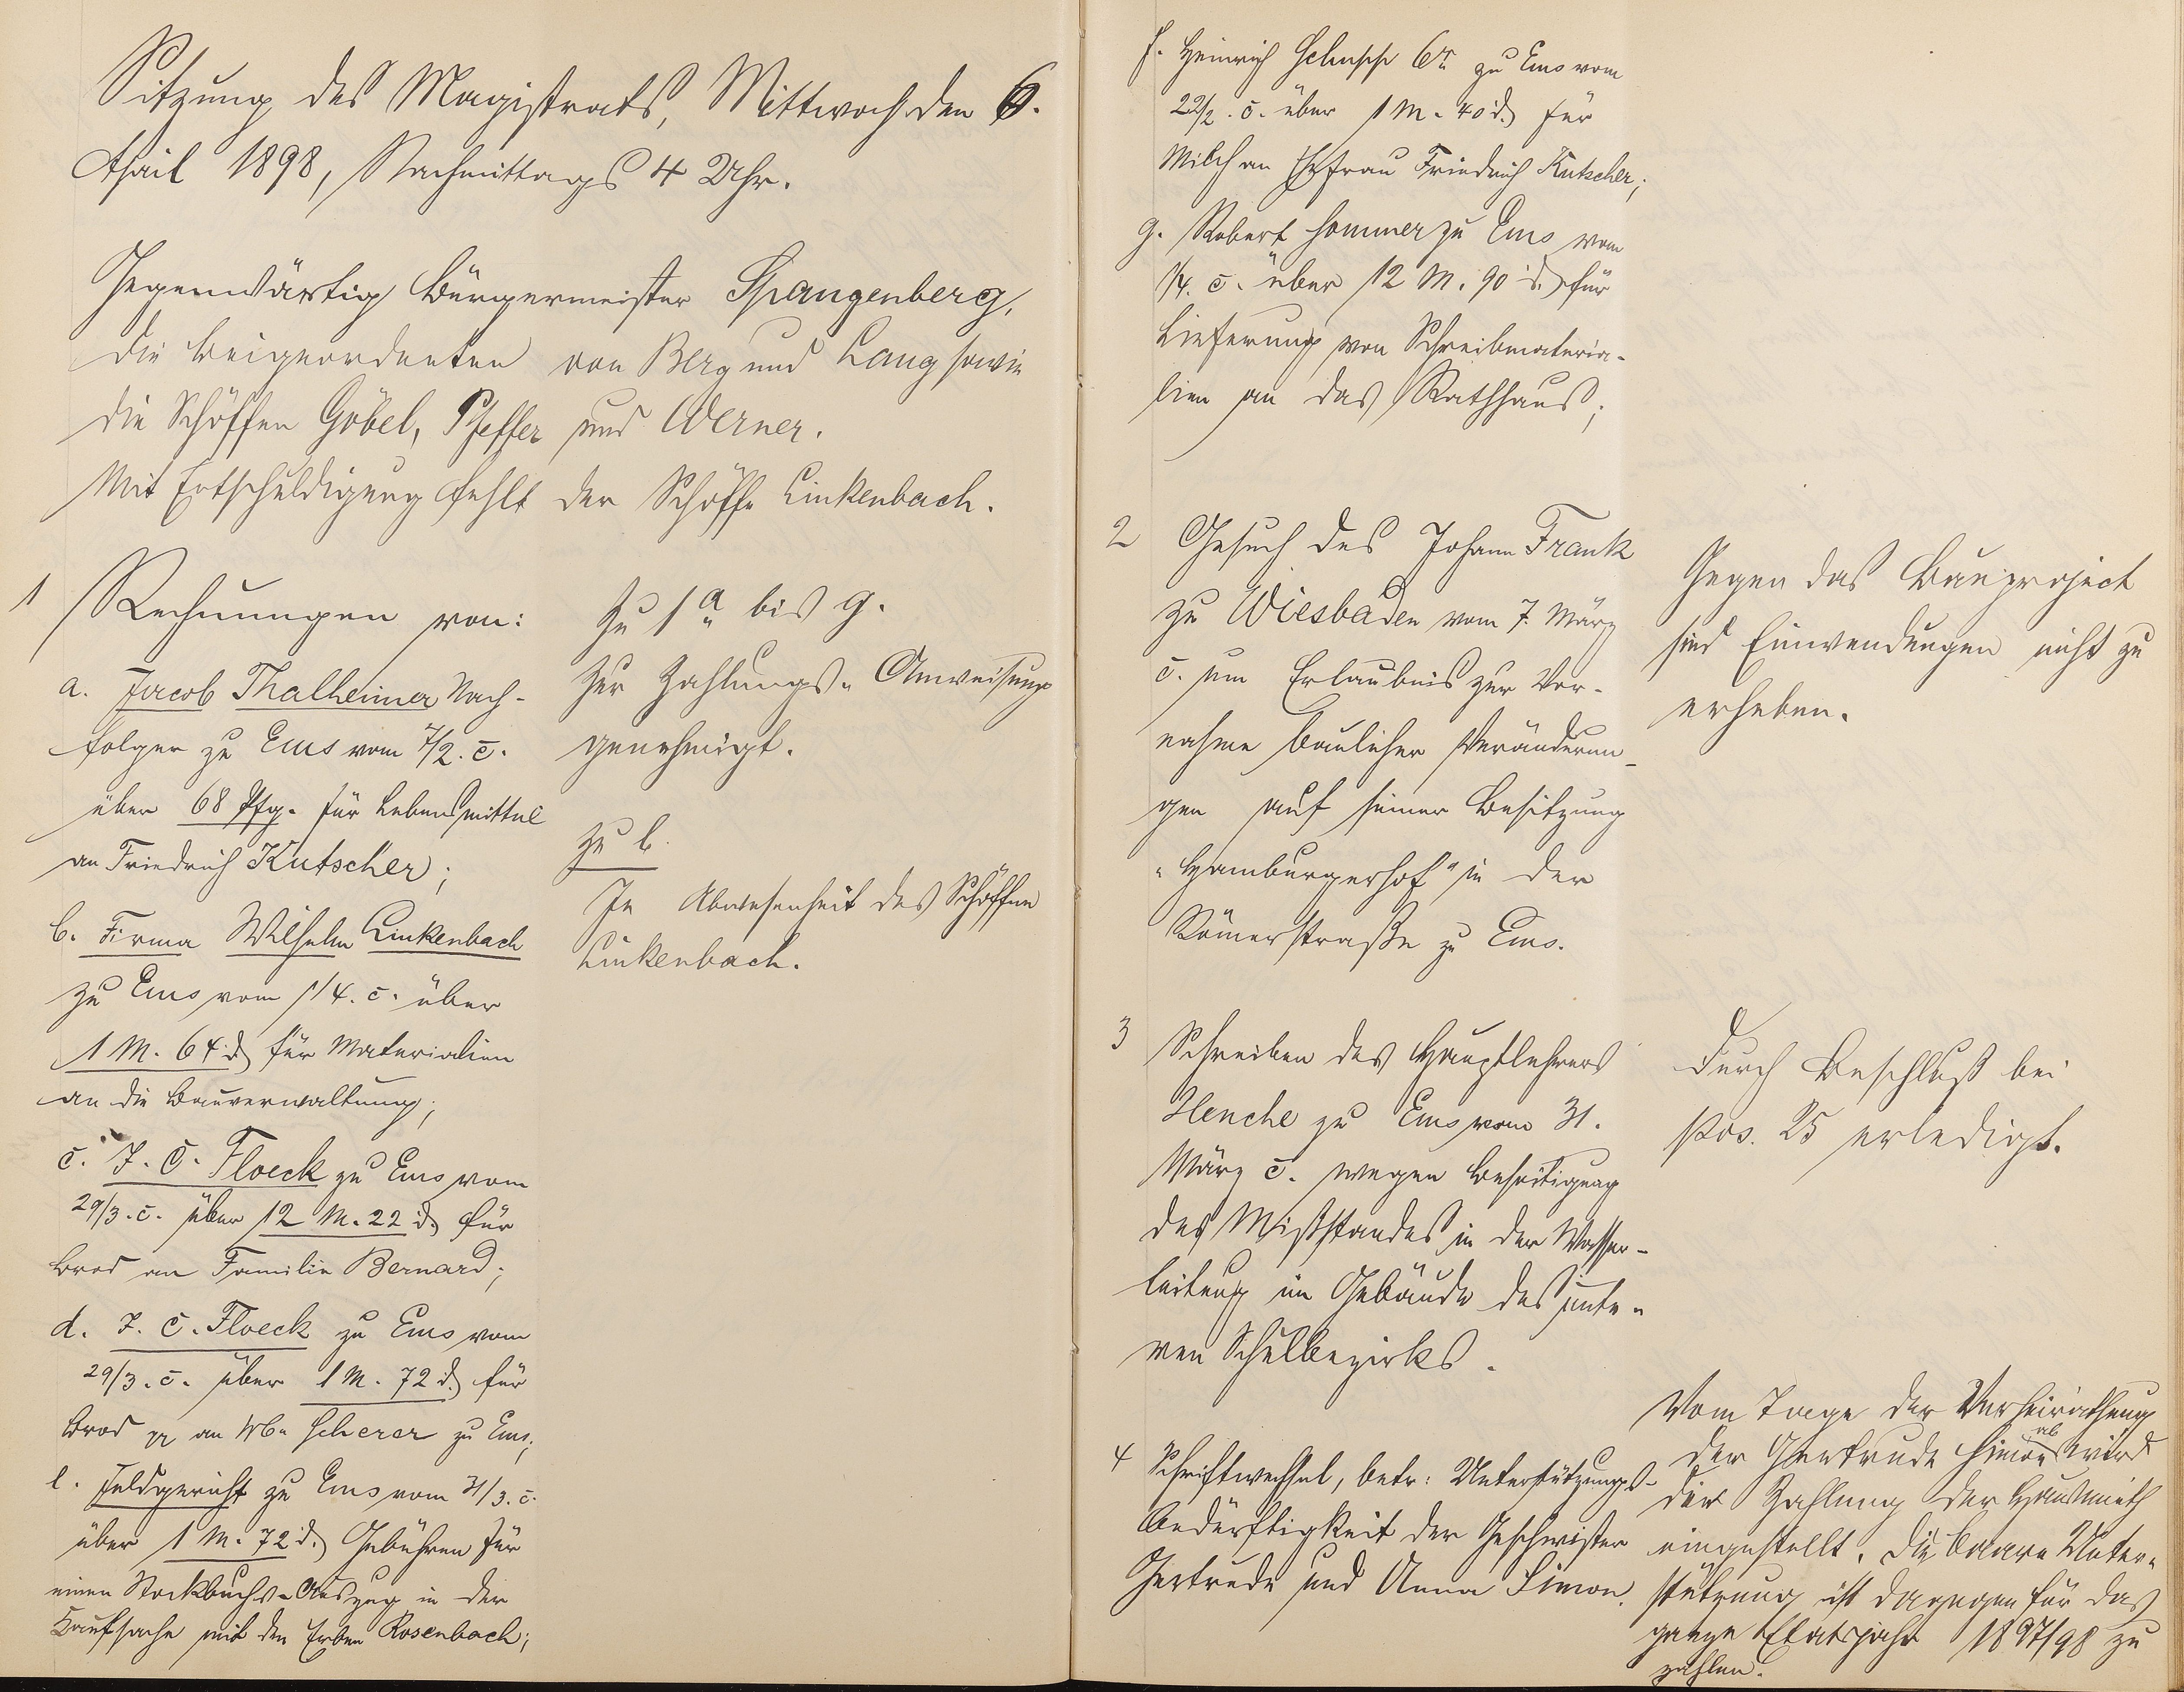 Sitzung des Magistrats, Mittwoch den 6.
April 1898, Nachmittags 4 Uhr.
Gegenwärtig Bürgermeister Spangenberg,
die Beigeordneten von Berg und Lang sowie
die Schöffen Göbel, Pfeffer und Werner.
Mit Entschuldigung fehlt der Schöffe Linkenbach.
1 Rechnungen von:
a. Jacob Thalheimer Nach-
folger zu Ems vom 7/2. c.
über 68 Pfg. für Lebensmittel
an Friedrich Kutscher;
b. Firma Wilhelm Linkenbach
zu Ems vom 1/4. c. über
1 M. 64 d. für Materialien
an die Bauverwaltung;
c. J. C. Floeck zu Ems vom
29/3. c. über 12 M. 22 d. für
Brod an Familie Bernard;
d. J. C. Floeck zu Ems vom
29/3. c. über 1 M. 72 d. für
Brod an Wb. Scherer zu Ems;
e. Feldgericht zu Ems vom 31/3. c.
über 1 M. 72 d. Gebühren für
einen Stockbuchs-Auszug in der
Kaufsache mit den Erben Rosenbach;
Zu 1 a bis g.
Zur Zahlungs-Anweisung
genehmigt.
zu b.
In Abwesenheit des Schöffen
Linkenbach.
f. Heinrich Schupp 6r. zu Ems vom
22/2. c. über 1 M. 40 d. für
Milch an Ehefrau Friedrich Kutscher;
g. Robert Sommer zu Ems vom
1/4. c. über 12 M. 90 d. für
Lieferung von Schreibmateria-
lien an das Rathhaus;
2 Gesuch des Johann Frank
zu Wiesbaden vom 7. März
c. um Erlaubnis zur Vor-
nahme baulicher Veränderun-
gen auf seiner Besitzung
"Hamburgerhof" in der
Römerstraße zu Ems.
Gegen das Bauproject
sind Einwendungen nicht zu
erheben.
3 Schreiben des Hauptlehrers
Henche zu Ems vom 31.
März c. wegen Beseitigung
des Mißstandes in der Wasser-
leitung im Gebäude des unte-
ren Schulbezirks.
Durch Beschluß bei
Pos. 25 erledigt.
4 Schriftwechsel, betr: Unterstützungs-
bedürftigkeit der Geschwister
Gertrude und Anna Simon.
Vom Tage der Verheirathung
der Gertrude Simon ab wird
die Zahlung der Hausmieth
eingestellt. Die baare Unter-
stützung ist dagegen für das
ganze Etatsjahr 1897/98 zu
zahlen.